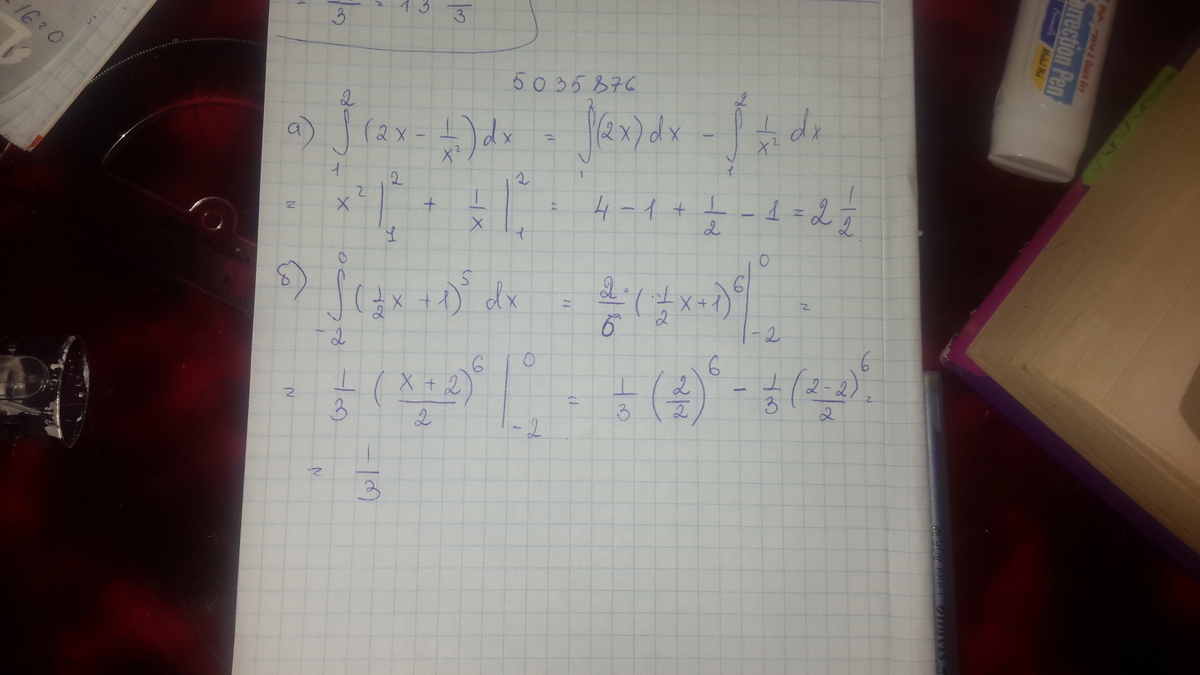 -16=0
= /3 = 13 /3
5035876
а) ∫₁² (2x - 1/x²) dx = ∫₁² (2x) dx - ∫₁² 1/x² dx
= x² |₁² + 1/x |₁² = 4 - 1 + 1/2 - 1 = 2 1/2
б) ∫₋₂⁰ (1/2 x + 1)⁵ dx = 2/6 · (1/2 x + 1)⁶ |₋₂⁰ =
= 1/3 ( (x + 2)/2 )⁶ |₋₂⁰ = 1/3 (2/2)⁶ - 1/3 ( (2-2)/2 )⁶ =
= 1/3
Correction Pen